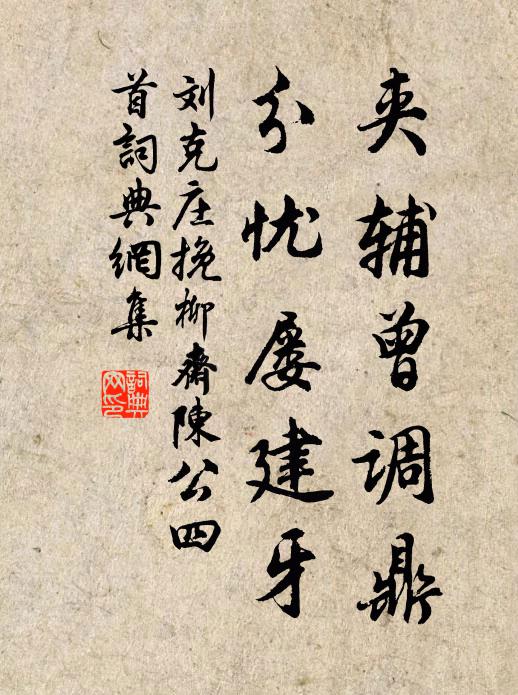 夹辅曾调鼎
分忧屡建牙
刘克庄挽柳齋陳公四
首詞典網集
詞典
网印